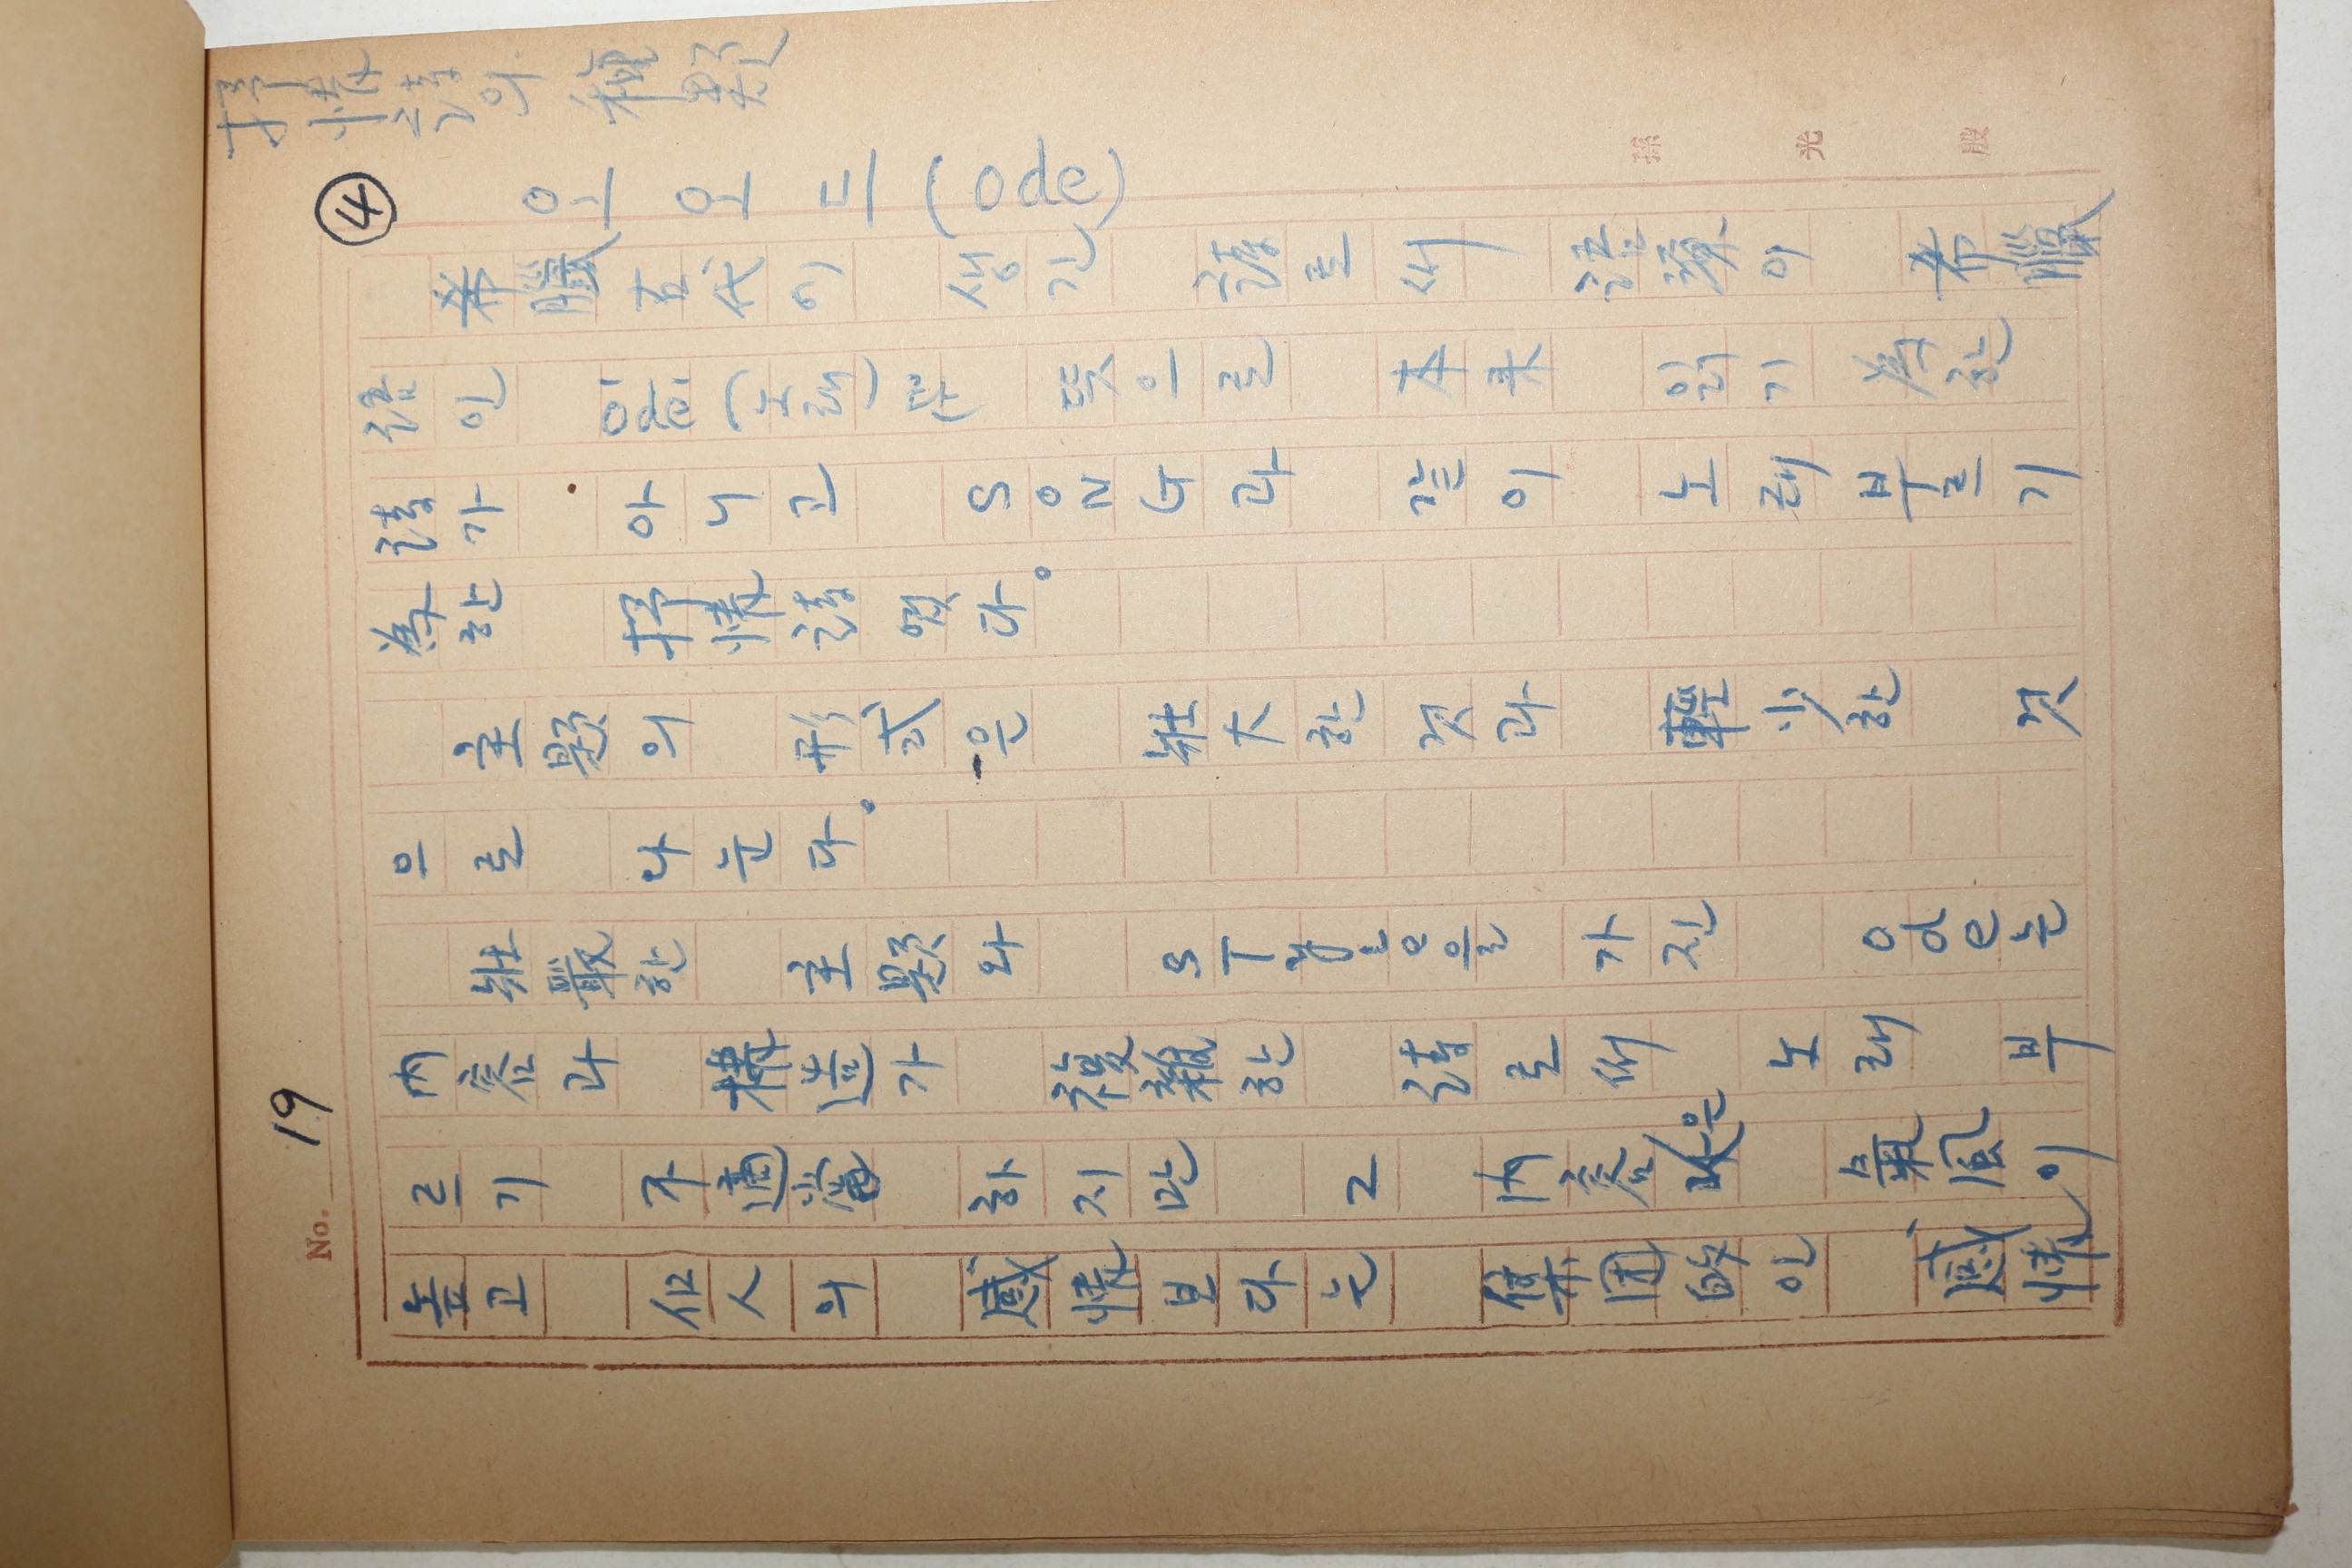 抒情詩의 種類
No. 19
④ 오오드 (ode)
希臘古代에 생긴 詩로써 語源이 希臘
語인 ōdē(노래)란 뜻으로 本来 읽기 為한
詩가 아니고 SONG과 같이 노래부르기
為한 抒情詩였다。
主題의 形式은 壯大한 것과 輕少한 것
으로 나눈다。
壯嚴한 主題와 STyle을 가진 ode는
內容과 構造가 複雜한 詩로써 노래 부
르기 不適當하지만 그 內容은 氣風이
높고 個人의 感情보다는 集団的인 感情
孫光殷